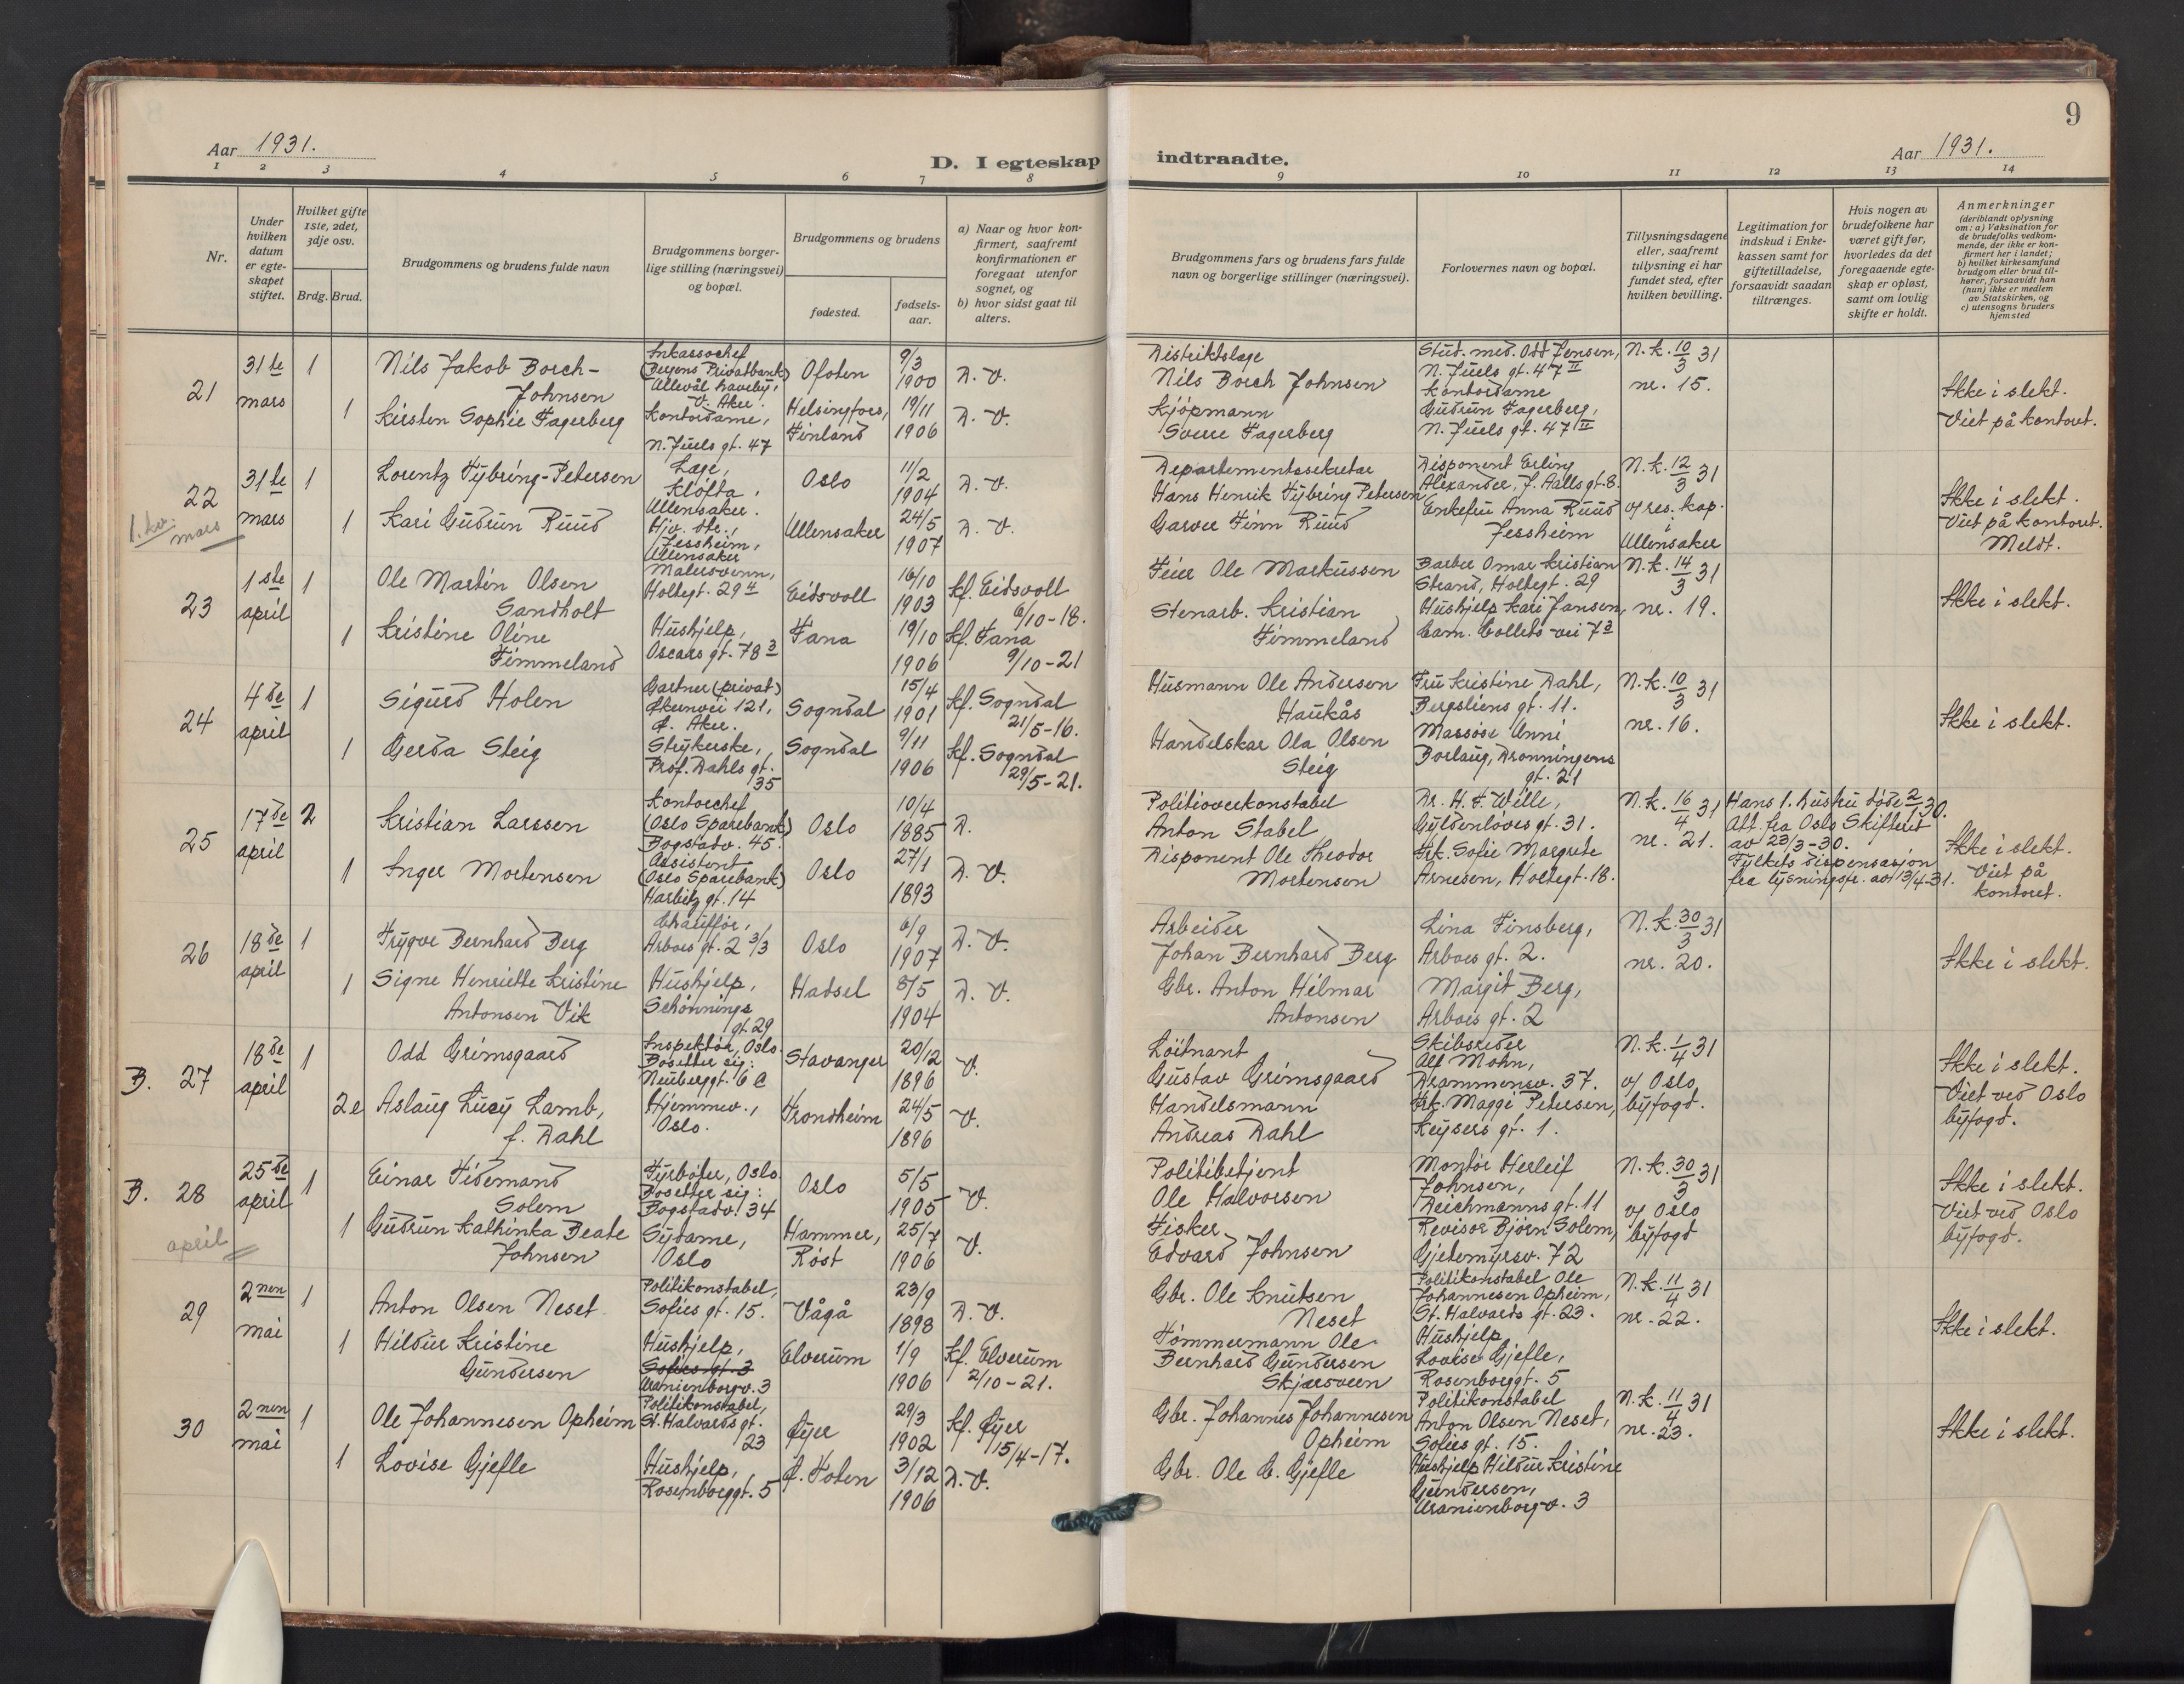 9
Aar 1931.
D. I egteskap indtraadte.
Aar 1931.
1 2 3 4 5 6 7 8 9 10 11 12 13 14
Nr.
Under
hvilken
datum
er egte-
skapet
stiftet.
Hvilket gifte
1ste, 2det,
3dje osv.
Brdg. Brud.
Brudgommens og brudens fulde navn
Brudgommens borger-
lige stilling (næringsvei)
og bopæl.
Brudgommens og brudens
fødested.
fødsels-
aar.
a) Naar og hvor kon-
firmert, saafremt
konfirmationen er
foregaat utenfor
sognet, og
b) hvor sidst gaat til
alters.
Brudgommens fars og brudens fars fulde
navn og borgerlige stillinger (næringsvei).
Forlovernes navn og bopæl.
Tillysningsdagene
eller, saafremt
tillysning ei har
fundet sted, efter
hvilken bevilling.
Legitimation for
indskud i Enke-
kassen samt for
giftetilladelse,
forsaavidt saadan
tiltrænges.
Hvis nogen av
brudefolkene har
været gift før,
hvorledes da det
foregaaende egte-
skap er opløst,
samt om lovlig
skifte er holdt.
Anmerkninger
(deriblandt oplysning
om: a) Vaksination for
de brudefolks vedkom-
mende, der ikke er kon-
firmert her i landet;
b) hvilket kirkesamfund
brudgom eller brud til-
hører, forsaavidt han
(hun) ikke er medlem
av Statskirken, og
c) utensogns bruders
hjemsted
21
31te
mars
1
Nils Jakob Borch-
Johnsen
Inkassochef
(Bergens Privatbank)
Ullevål haveby,
V. Aker.
Ofoten
9/3
1900
D. V.
Distriktslæge
Nils Borch Johnsen
Stud. med. Odd Jensen,
N. Juels gt. 47 II
N. k. 10/3 31
nr. 15.
1
Kirsten Sophie Fagerberg
Kontordame,
N. Juels gt. 47
Helsingfors,
Finland
19/11
1906
D. V.
Kjøpmann
Sverre Fagerberg
Kontordame
Gudrun Fagerberg,
N. Juels gt. 47 II
Ikke i slekt.
Viet på kontoret.
22
1. kv.
mars
31te
mars
1
Lorentz Tybring-Petersen
Læge,
Kløfta,
Ullensaker.
Oslo
11/2
1904
D. V.
Departementssekretær
Hans Henrik Tybring Petersen
Disponent Erling
Alexander, J. Aalls gt. 8.
N. k. 12/3 31
v/ res. kap.
i
Ullensaker
1
Kari Gudrun Ruud
Hjv. dtr.,
Jessheim,
Ullensaker
Ullensaker
24/5
1907
D. V.
Garver Finn Ruud
Enkefru Anna Ruud
Jessheim
Ikke i slekt.
Viet på kontoret.
Meldt.
23
1ste
april
1
Ole Martin Olsen
Sandholt
Malersvenn,
Holtegt. 29 II
Eidsvoll
16/10
1903
Kf. Eidsvoll
6/10-18.
Feier Ole Markussen
Barber Omar Kristian
Strand, Holtegt. 29
N. k. 14/3 31
nr. 19.
1
Kristine Oline
Fimmeland
Hushjelp,
Oscars gt. 78 3
Fana
19/10
1906
Kf. Fana
9/10-21
Stenarb. Kristian
Fimmeland
Hushjelp Kari Jansen,
Cam. Colletts vei 7 3
Ikke i slekt.
24
4de
april
1
Sigurd Holen
Gartner (privat)
Økernvei 121,
Ø. Aker.
Sogndal
15/4
1901
Kf. Sogndal
21/5-16.
Husmann Ole Andersen
Haukås
Fru Kristine Dahl,
Bergsliens gt. 11.
N. k. 10/3 31
nr. 16.
1
Gerda Steig
Strykerske,
Prof. Dahls gt.
35
Sogndal
9/11
1906
Kf. Sogndal
29/5-21.
Handelskar Ola Olsen
Steig
Massøse Unni
Borlaug, Dronningens
gt. 21
Ikke i slekt.
25
17de
april
2
Kristian Larssen
Kontorchef
(Oslo Sparebank)
Bogstadv. 45.
Oslo
10/4
1885
D.
Politioverkonstabel
Anton Stabel
Dr. H. F. Wille,
Gyldenløves gt. 31.
N. k. 16/4 31
nr. 21.
Hans 1. hustru døde 2/1 30.
Att. fra Oslo Skifterett
av 23/3-30.
Fylkets dispensasjon
fra lysningsfr. av 13/4-31.
1
Inger Mortensen
Assistent
(Oslo Sparebank)
Harbitz gt. 14
Oslo
27/1
1893
D. V.
Disponent Ole Theodor
Mortensen
Frk. Sofie Margrete
Arnesen, Holtegt. 18.
Ikke i slekt.
Viet på
kontoret.
26
18de
april
1
Trygve Bernhard Berg
Chauffør,
Arbos gt. 2 3/3
Oslo
6/9
1907
D. V.
Arbeider
Johan Bernhard Berg
Lina Finsberg,
Arbos gt. 2.
N. k. 30/3 31
nr. 20.
1
Signe Henriette Kristine
Antonsen Vik
Hushjelp,
Schønnings
gt. 29
Hadsel
8/5
1904
D. V.
Gbr. Anton Hilmar
Antonsen
Margit Berg,
Arbos gt. 2
Ikke i slekt.
B. 27
18de
april
1
Odd Grimsgaard
Inspektør, Oslo.
Bosetter sig:
Neuberggt. 6 C
Stavanger
20/12
1896
V.
Løitnant
Gustav Grimsgaard
Skibsreder
Alf Mohn,
Drammensv. 37.
N. k. 1/4 31
v/ Oslo
byfogd.
2e
Aslaug Lucy Lamb,
f. Dahl
Hjemmev.,
Oslo.
Trondheim
24/5
1896
V.
Handelsmann
Andreas Dahl
Frk. Maggi Petersen,
Keysers gt. 1.
Ikke i slekt.
Viet ved Oslo
byfogd.
B. 28
april
25de
april
1
Einar Tidemand
Solem
Fyrbøter, Oslo.
Bosetter sig:
Bogstadv. 34
Oslo
5/5
1905
V.
Politibetjent
Ole Halvorsen
Montør Herleif
Johnsen,
Deichmanns gt. 11
N. k. 30/3 31
v/ Oslo
byfogd
1
Gudrun Kathinka Beate
Johnsen
Sydame,
Oslo
Hammer,
Røst
25/7
1906
V.
Fisker
Edvard Johnsen
Revisor Bjørn Solem,
Gjetemyrsv. 72
Ikke i slekt.
Viet ved Oslo
byfogd.
29
2nen
mai
1
Anton Olsen Neset
Politikonstabel,
Sofies gt. 15.
Vågå
23/9
1898
D. V.
Gbr. Ole Knutsen
Neset
Politikonstabel Ole
Johannesen Opheim,
St. Halvards gt. 23.
N. k. 11/4 31
nr. 22.
1
Hildur Kristine
Gundersen
Hushjelp,
Sofies gt. 3
Uranienborgv. 3
Elverum
1/9
1906
Kf. Elverum
2/10-21.
Tømmermann Ole
Bernhard Gundersen
Skjærsveen
Hushjelp
Lovise Gjefle,
Rosenborggt. 5
Ikke i slekt.
30
2nen
mai
1
Ole Johannesen Opheim
Politikonstabel,
St. Halvards gt.
23
Øyer
29/3
1902
Kf. Øyer
15/4-17.
Gbr. Johannes Johannesen
Opheim
Politikonstabel
Anton Olsen Neset,
Sofies gt. 15.
N. k. 11/4 31
nr. 23.
1
Lovise Gjefle
Hushjelp,
Rosenborggt. 5
Ø. Toten
3/12
1906
D. V.
Gbr. Ole C. Gjefle
Hushjelp Hildur Kristine
Gundersen,
Uranienborgv. 3
Ikke i slekt.